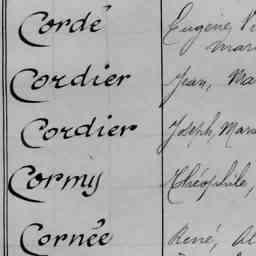 Cordé Eugène,
Cordier Jean,
Cordier Joseph,
Cormy Théophile,
Cornée René,